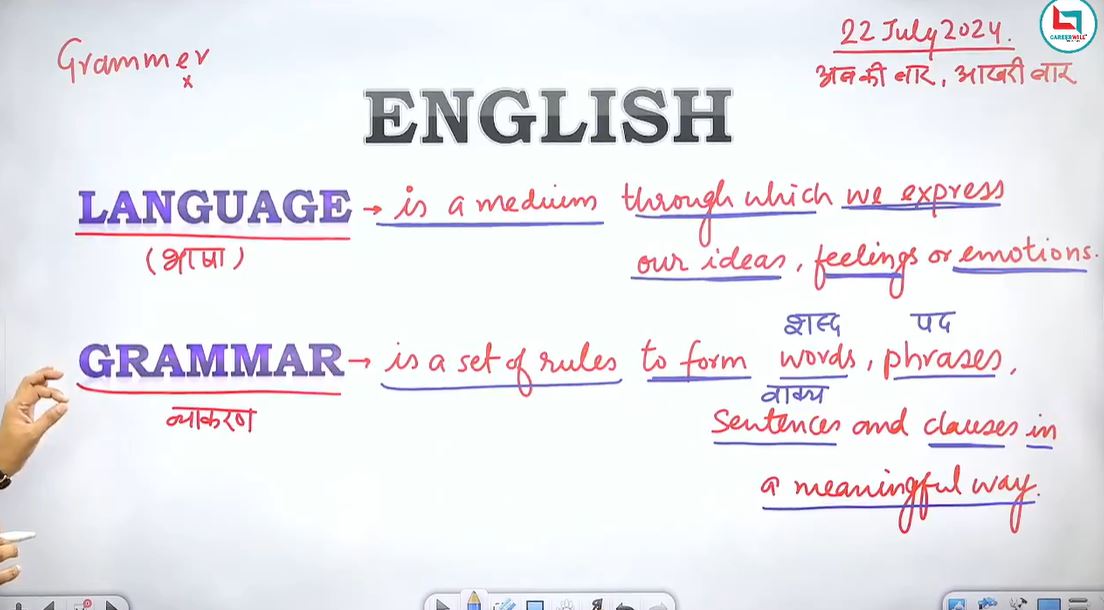 Grammer
x
22 July 2024.
अबकी बार, आखरी बार
CAREERWILL
ENGLISH
LANGUAGE → is a medium through which we express
(भाषा)
our ideas, feelings or emotions.
शब्द पद
GRAMMAR → is a set of rules to form words, phrases,
व्याकरण
वाक्य
Sentences and clauses in
a meaningful way.